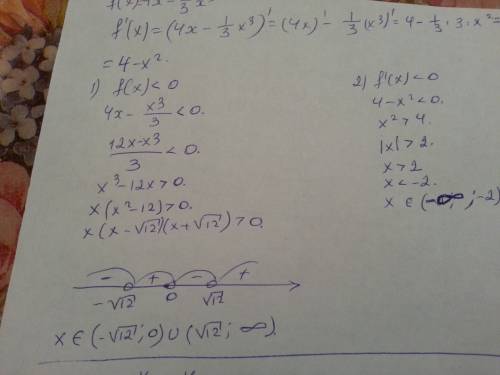 f(x) 4x - 1/3 x
f'(x) = (4x - 1/3 x³)' = (4x)' - 1/3 (x³)' = 4 - 1/3 · 3 · x² =
= 4 - x².
1) f(x) < 0
4x - x3/3 < 0.
12x-x3/3 < 0.
x³ - 12x > 0.
x(x² - 12) > 0.
x(x - √12)(x + √12) > 0.
- + - +
-√12 0 √12
x ∈ (-√12; 0) ∪ (√12; ∞).
2) f'(x) < 0
4 - x² < 0.
x² > 4.
|x| > 2.
x > 2
x < -2.
x ∈ (-∞; -2)